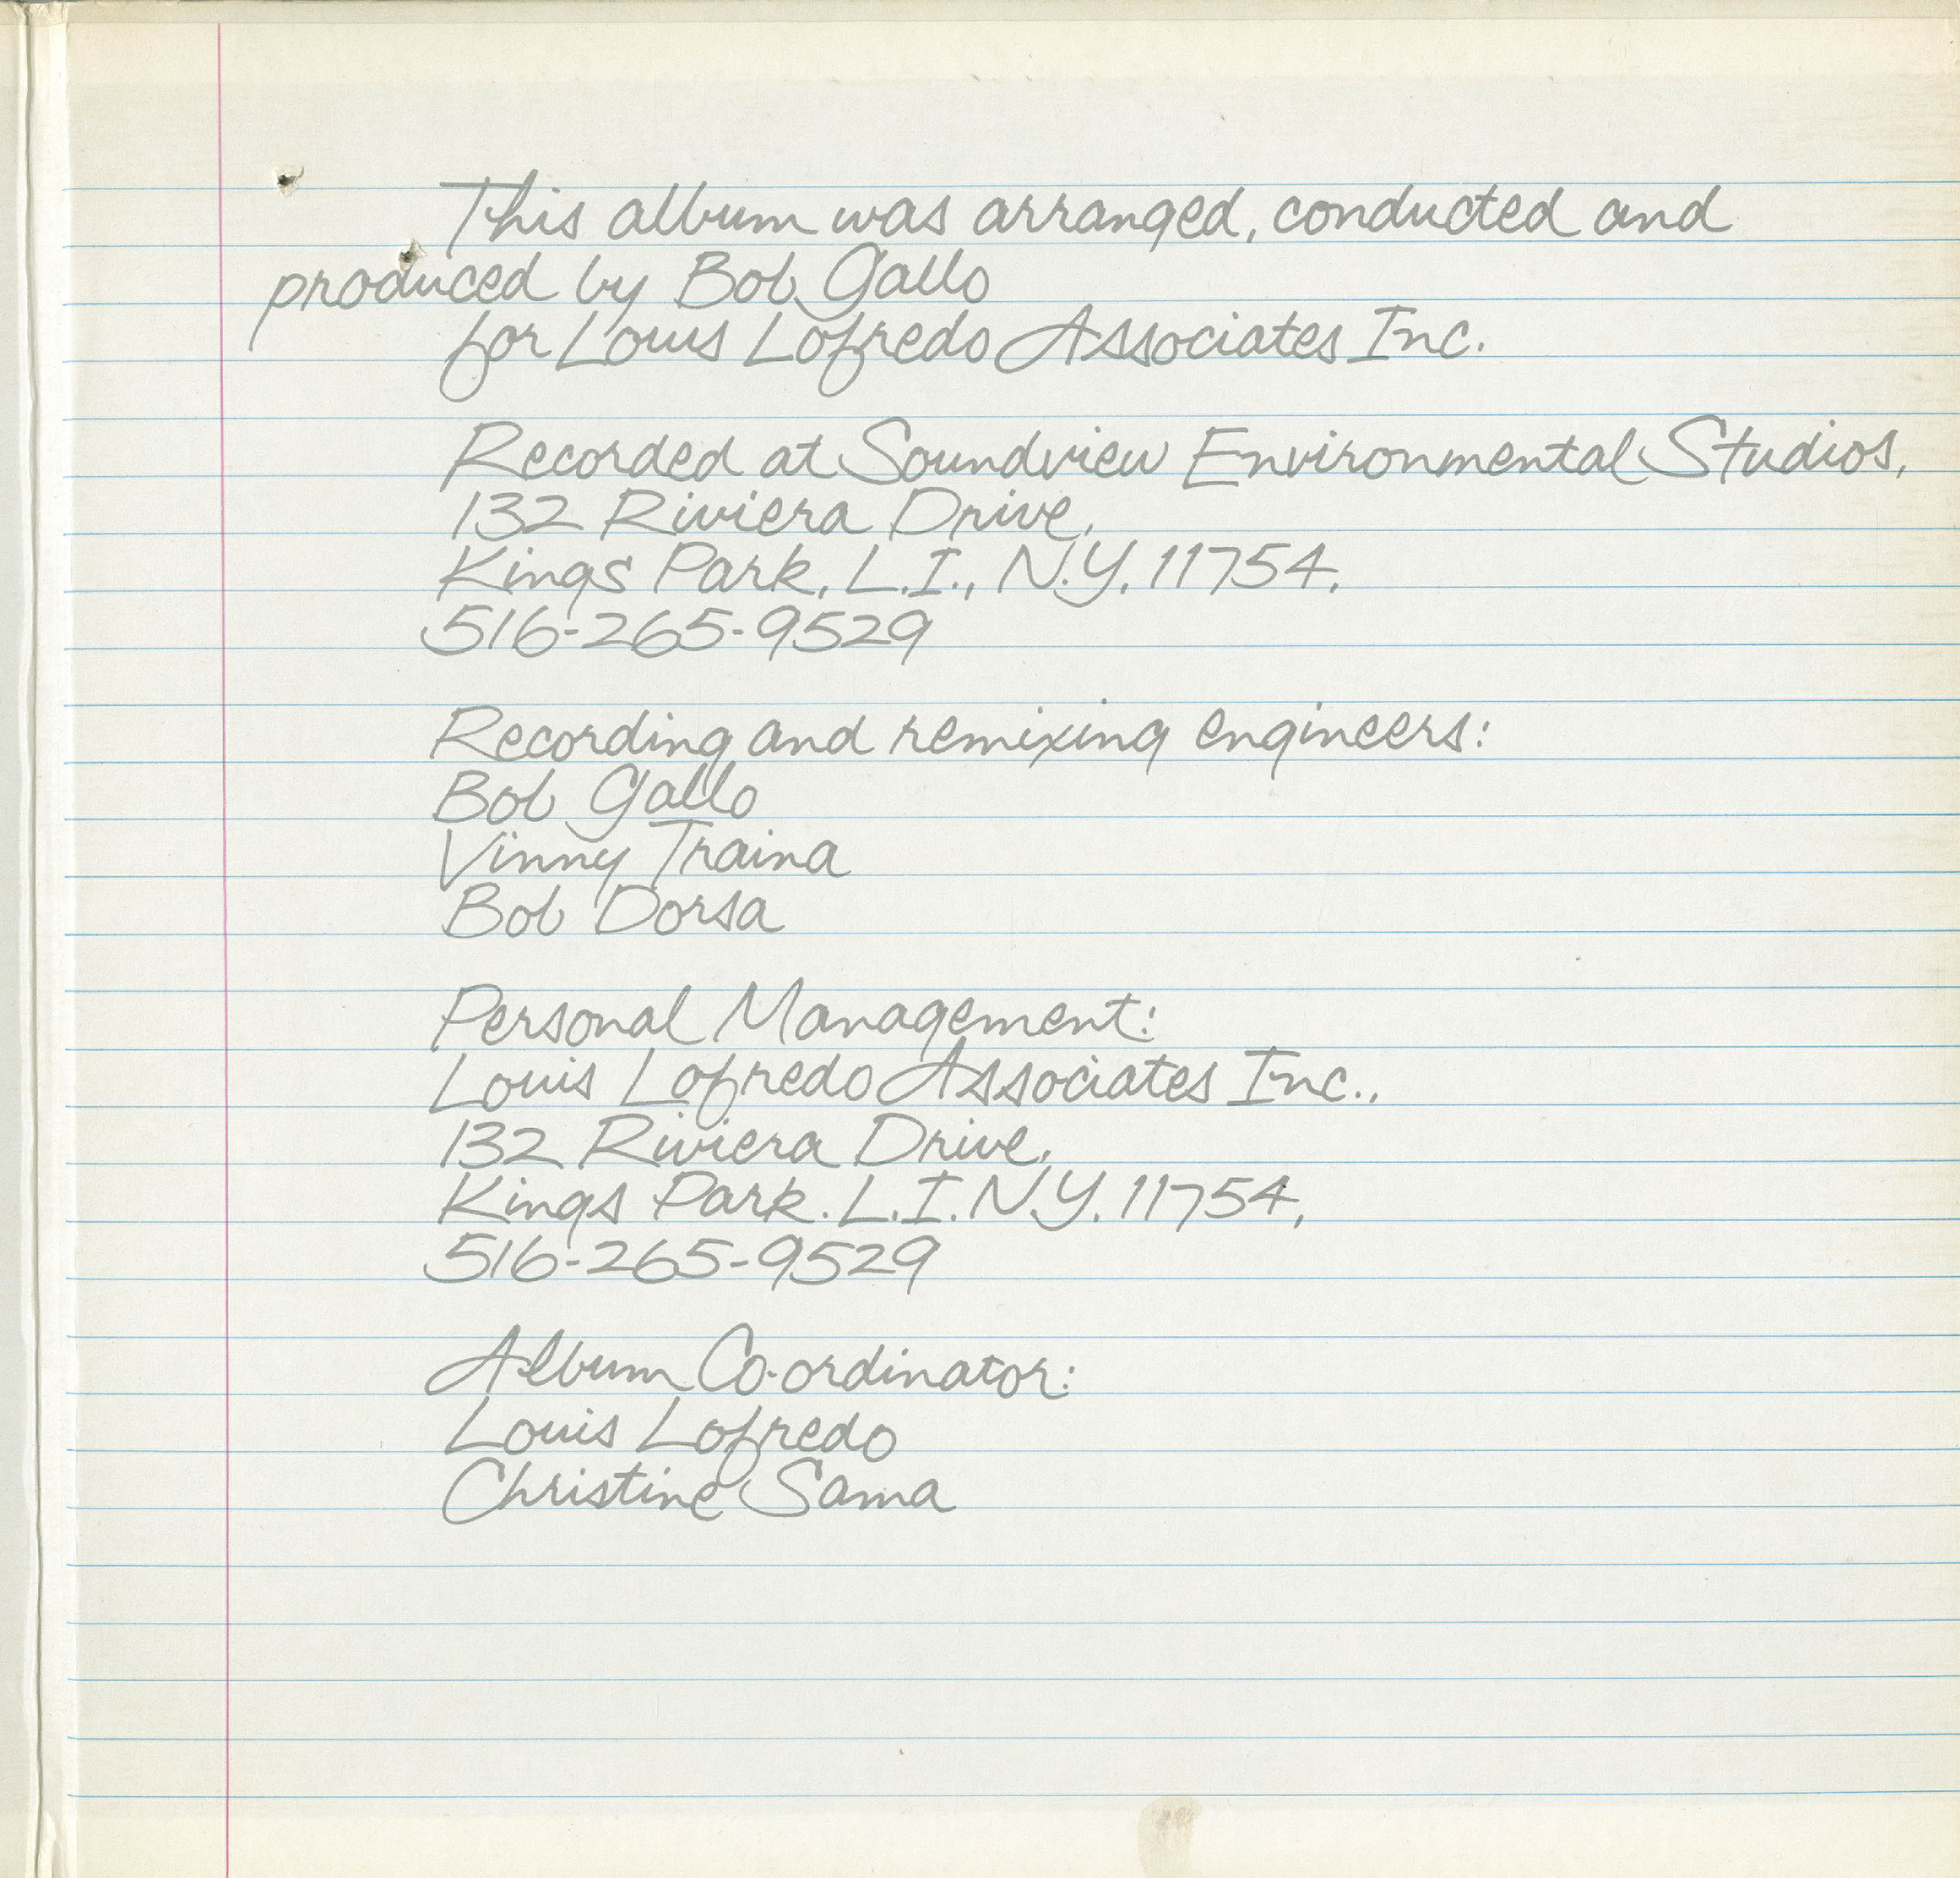 This album was arranged, conducted and
produced by Bob Gallo
for Louis Lofredo Associates Inc.
Recorded at Soundview Environmental Studios,
132 Riviera Drive,
Kings Park, L.I., N.Y. 11754.
516-265-9529
Recording and remixing engineers:
Bob Gallo
Vinny Traina
Bob Dorsa
Personal Management:
Louis Lofredo Associates Inc.,
132 Riviera Drive,
Kings Park. L.I. N.Y. 11754,
516-265-9529
Album Co-ordinator:
Louis Lofredo
Christine Sama